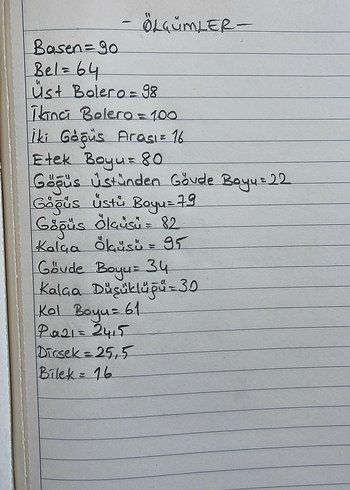 - ÖLÇÜMLER -
Basen=90
Bel=64
Üst Bolero=98
İkinci Bolero=100
İki Göğüs Arası=16
Etek Boyu=80
Göğüs Üstünden Gövde Boyu=22
Göğüs Üstü Boyu=79
Göğüs Ölçüsü = 82
Kalça Ölçüsü = 95
Gövde Boyu=34
Kalça Düşüklüğü=30
Kol Boyu=61
Pazı=24,5
Dirsek=25,5
Bilek=16